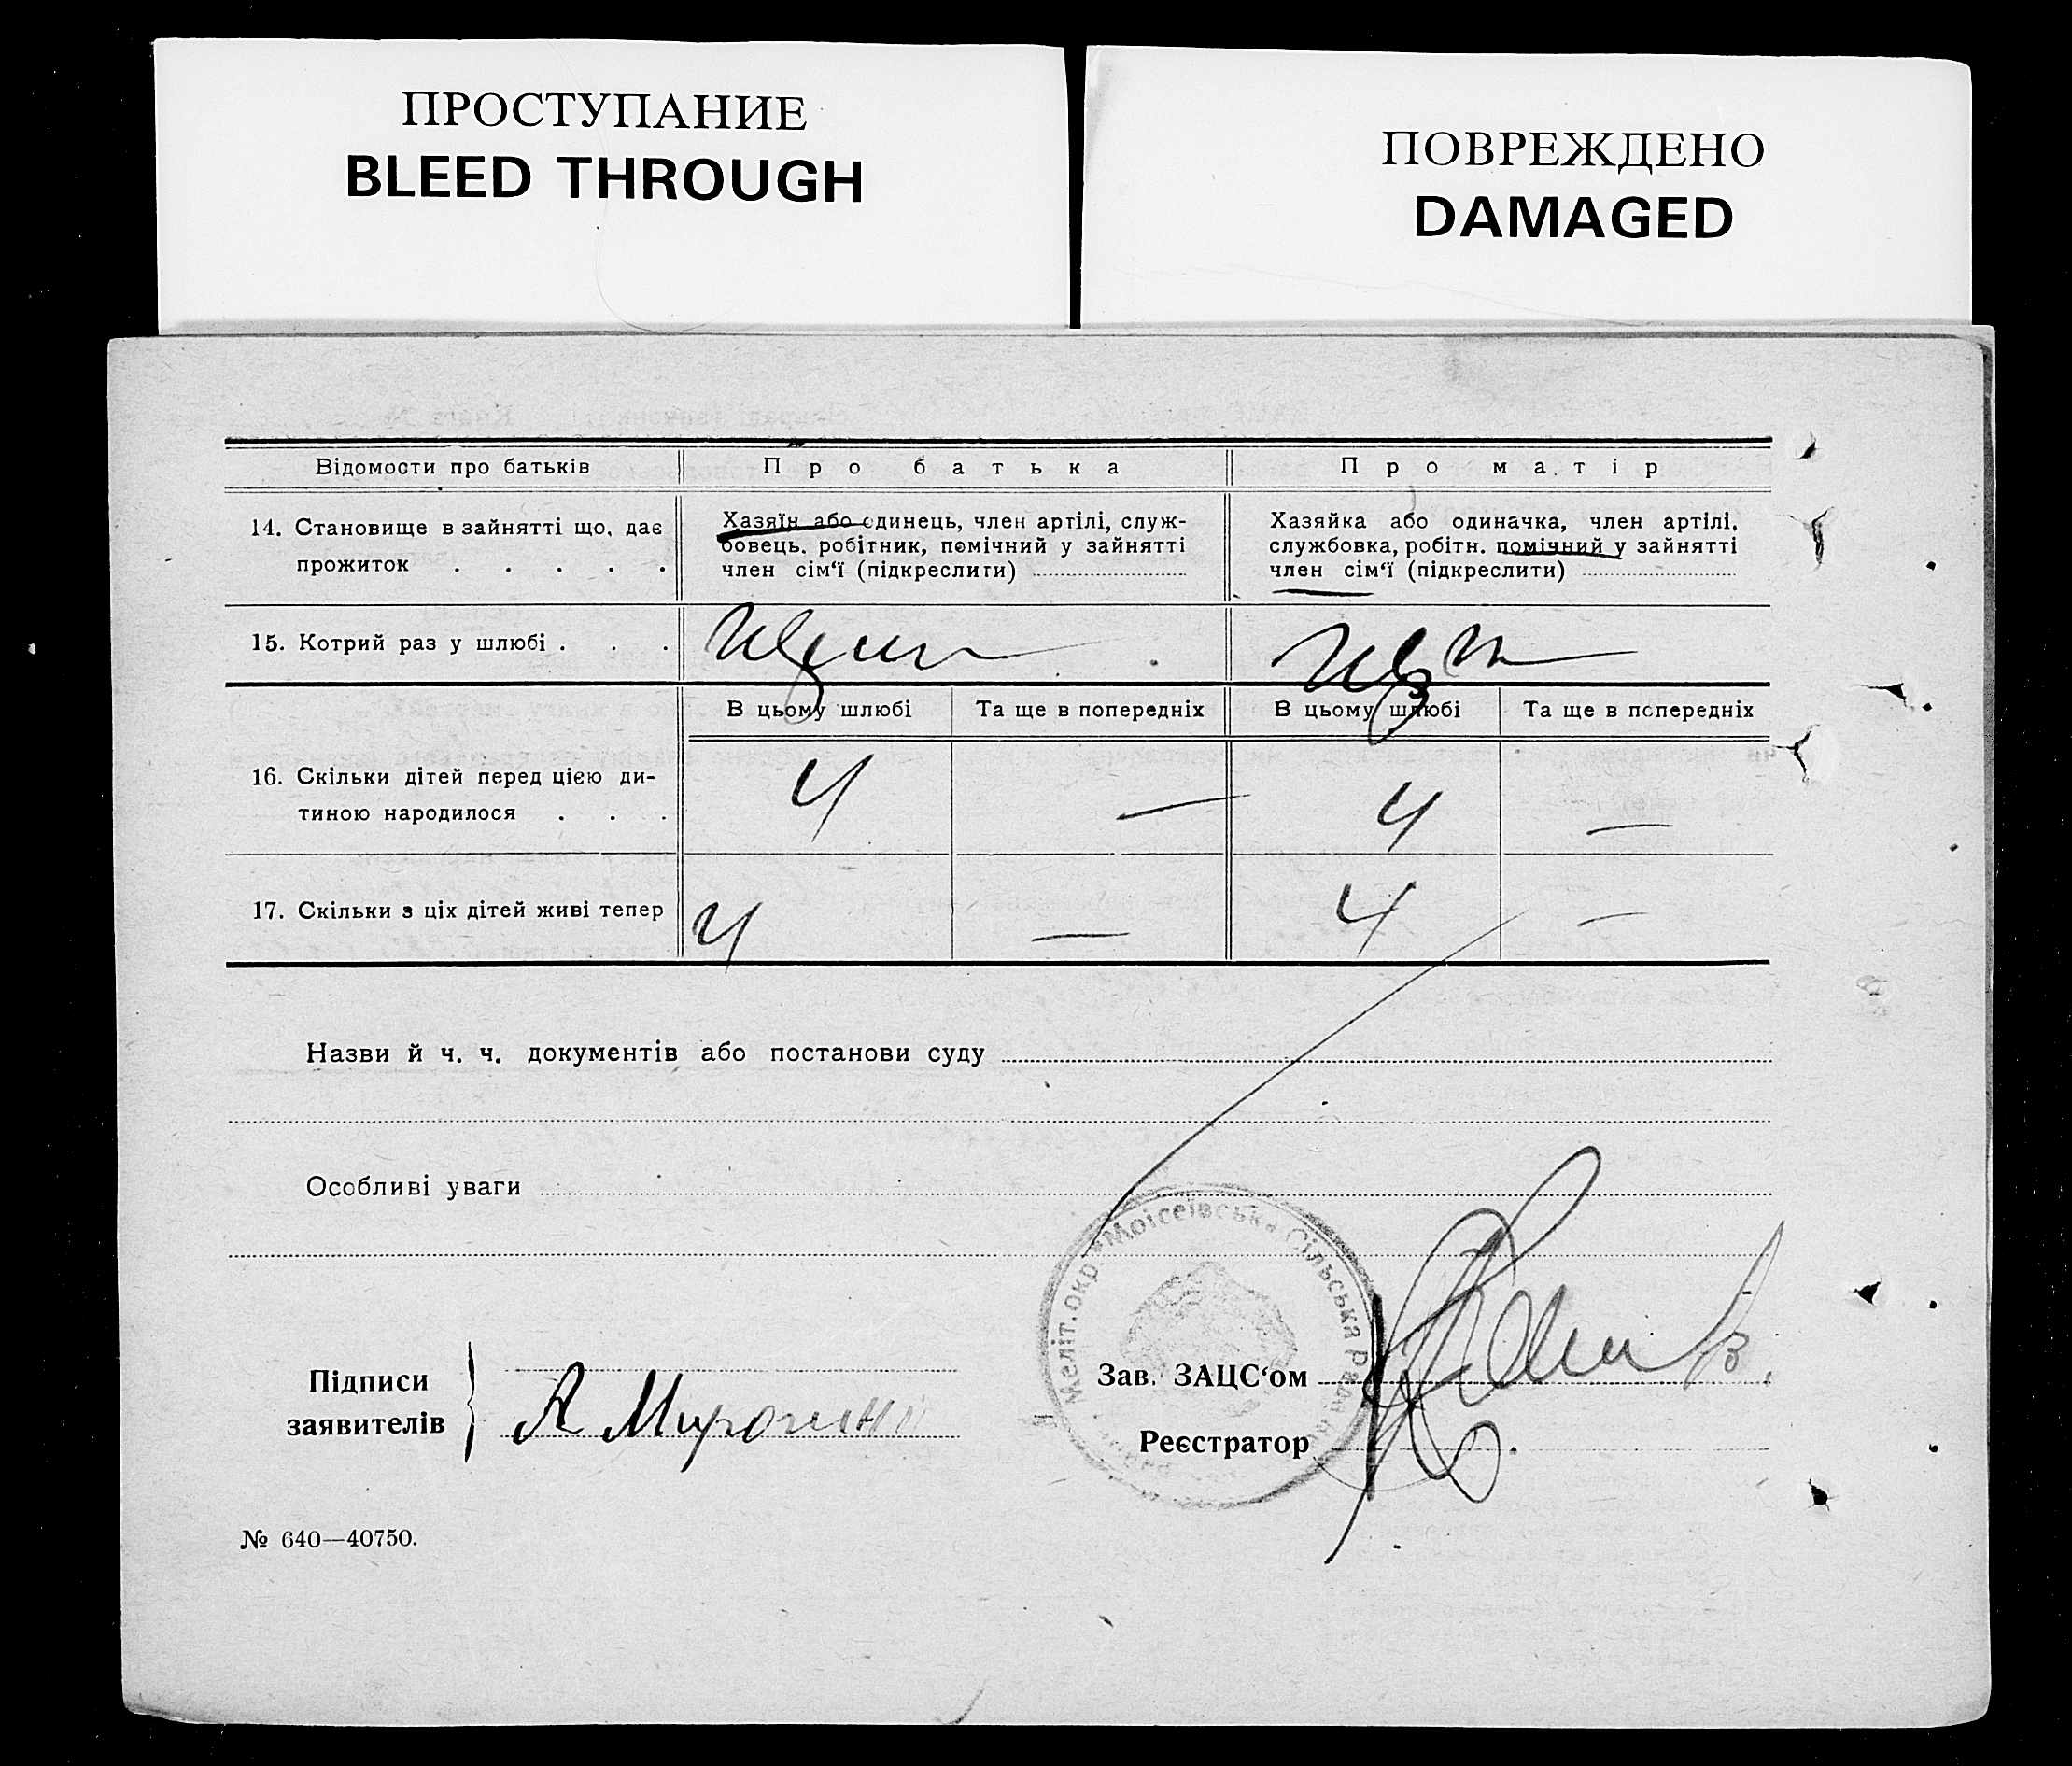 ПРОСТУПАНИЕ
BLEED THROUGH
ПОВРЕЖДЕНО
DAMAGED
Відомости про батьків
Про батька
Про матір
14. Становище в зайнятті що, дає
прожиток . . . . .
Хазяїн або єдинець, член артілі, служ-
бовець. робітник, помічний у зайнятті
член сім‘ї (підкреслити)
Хазяйка або одиначка, член артілі,
службовка, робітн. помічний у зайнятті
член сім‘ї (підкреслити)
15. Котрий раз у шлюбі . . .
В цьому шлюбі
Та ще в попередніх
В цьому шлюбі
Та ще в попередніх
16. Скільки дітей перед цією ди-
тиною народилося . . .
4 — 4 —
17. Скільки з ціх дітей живі тепер
4 — 4 —
Назви й ч. ч. документів або постанови суду
Особливі уваги
Меліт. окр. Моісеївська Сільська Рада
Підписи
заявителів
А
Зав. ЗАЦС‘ом
Реєстратор
№ 640—40750.